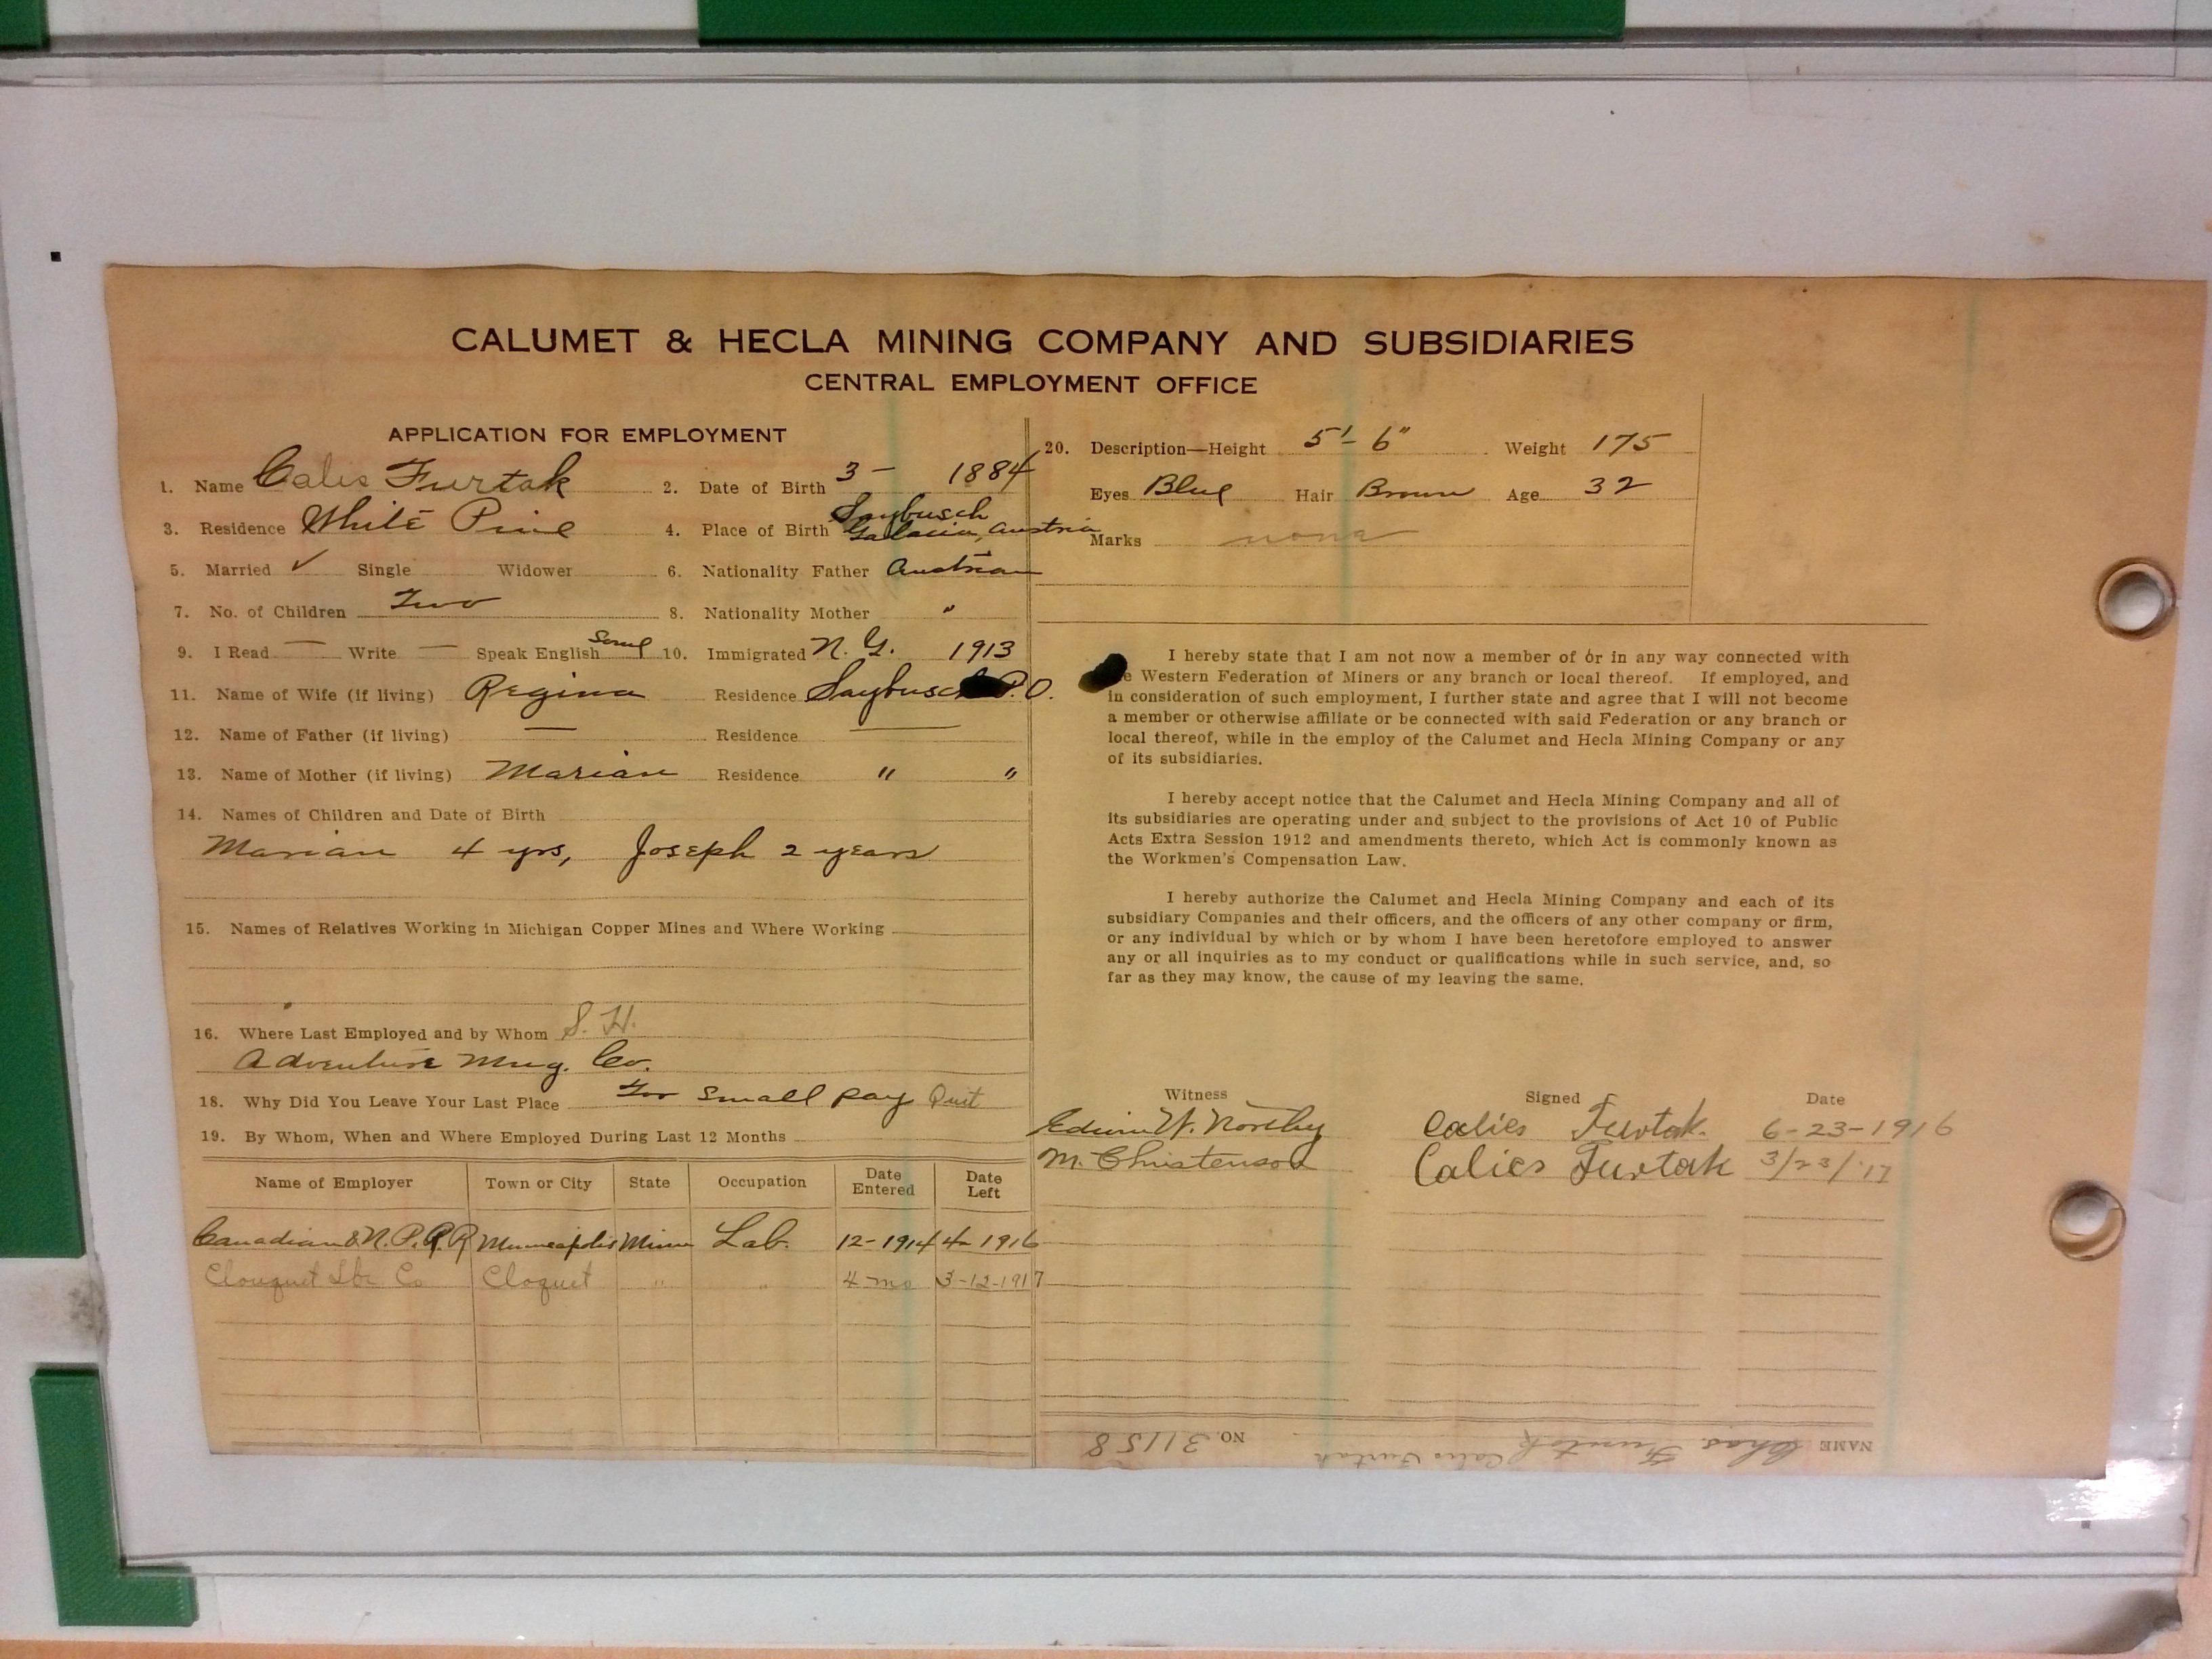 CALUMET & HECLA MINING COMPANY AND SUBSIDIARIES
CENTRAL EMPLOYMENT OFFICE
APPLICATION FOR EMPLOYMENT
1. Name Calis Furtak 2. Date of Birth 3 - 1884
3. Residence White Pine 4. Place of Birth Saybusch
Galacia, Austria
5. Married ✓ Single Widower 6. Nationality Father Austrian
7. No. of Children Two 8. Nationality Mother "
9. I Read — Write — Speak English Some 10. Immigrated N. Y. 1913
11. Name of Wife (if living) Regina Residence Saybusch P.O.
12. Name of Father (if living) — Residence —
13. Name of Mother (if living) Marian Residence " "
14. Names of Children and Date of Birth
Marian 4 yrs, Joseph 2 years
15. Names of Relatives Working in Michigan Copper Mines and Where Working
16. Where Last Employed and by Whom S. H.
Adventure Mng. Co.
18. Why Did You Leave Your Last Place Too small pay Quit
19. By Whom, When and Where Employed During Last 12 Months
Name of Employer Town or City State Occupation Date Entered Date Left
Canadian & N. P. R. R Minneapolis Minn Lab. 12-1914 4-1916
Clouquet Lbr Co Cloquet " " 4 mo 3-12-1917
20. Description—Height 5'- 6" Weight 175
Eyes Blue Hair Brown Age 32
Marks none
I hereby state that I am not now a member of or in any way connected with
Western Federation of Miners or any branch or local thereof. If employed, and
in consideration of such employment, I further state and agree that I will not become
a member or otherwise affiliate or be connected with said Federation or any branch or
local thereof, while in the employ of the Calumet and Hecla Mining Company or any
of its subsidiaries.
I hereby accept notice that the Calumet and Hecla Mining Company and all of
its subsidiaries are operating under and subject to the provisions of Act 10 of Public
Acts Extra Session 1912 and amendments thereto, which Act is commonly known as
the Workmen's Compensation Law.
I hereby authorize the Calumet and Hecla Mining Company and each of its
subsidiary Companies and their officers, and the officers of any other company or firm,
or any individual by which or by whom I have been heretofore employed to answer
any or all inquiries as to my conduct or qualifications while in such service, and, so
far as they may know, the cause of my leaving the same.
Witness Signed Date
Edwin W. Northy Calies Furtak. 6-23-1916
M. Christenson Calies Furtak 3/23/'17
NAME Chas. Furtak Calis Furtak NO. 31158